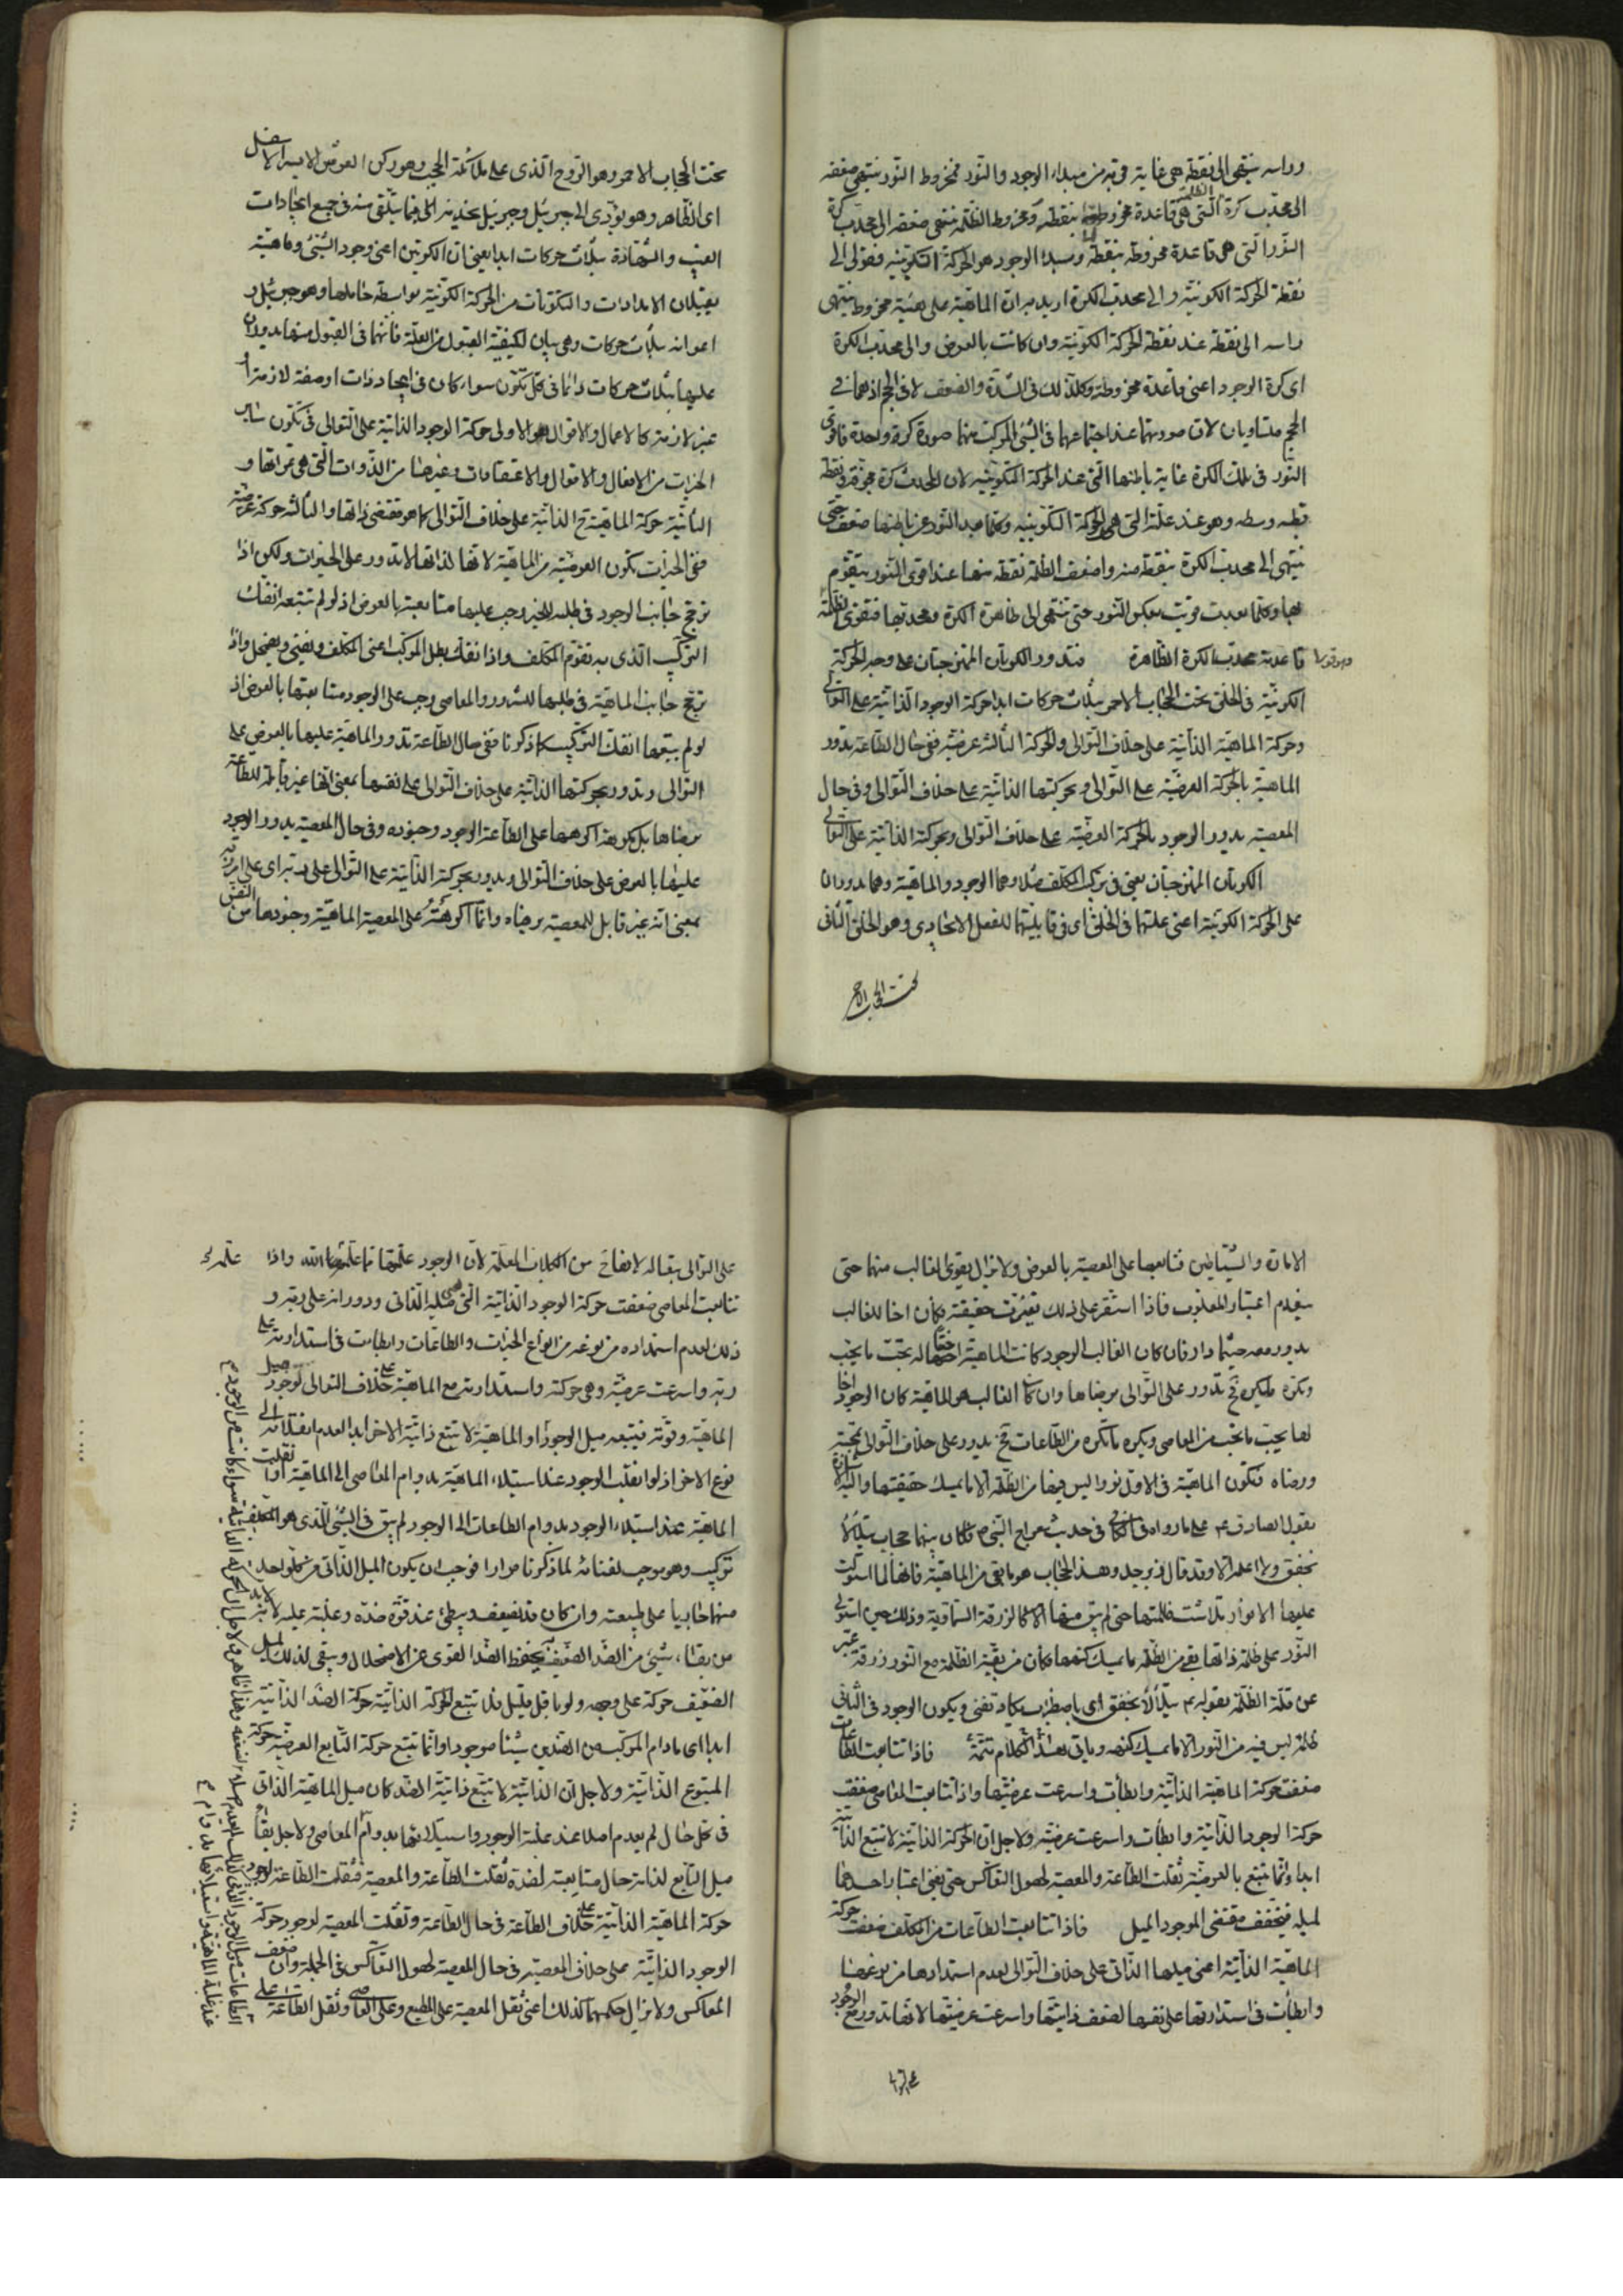 وراسه ينتهى الى نقطة هى غاية قوته من مبداء الوجود والنور فمخروط النور ينتهى ضعفه
الى محدّب كرة الظلمة التى هى قاعدة مخروطها بنقطة ومخروط الظلمة ينتهى ضعفه الى محدب كرة
النور التى هى قاعدة مخروطه بنقطة ومبدء الوجود هو الحركة التكوينيه فقولى الى
نقطة الحركة الكونية والى محدب الكرة اريد به ان الماهية على هيئة مخروط ينتهى
راسه الى نقطة عند نقطة الحركة الكونية وان كانت بالعرض والى محدب الكرة
اى كرة الوجود اعنى قاعدة مخروطه وكذلك فى الشدة والضعف لا فى الحجم اذ هما فى
الحجم متساويان لان صورتهما عند اجتماعهما فى الشئ المركب منهما صورة كرة واحدة فاقوى
النور فى تلك الكرة غاية باطنها التى عند الحركة التكوينيه لان المحدث كرة مجوفة ونقطة
قطبه وسطه وهو عند علته التى هى الحركة التكوينيه وكلما بعد النور عن باطنها ضعف حتى
ينتهى الى محدب الكرة بنقطة منه واضعف الظلمة نقطة منها عند اقوى النور يتقوم
بها وكلما بعدت قويت بعكس النور حتى تنتهى الى ظاهرة الكرة ومحدبها فتقوى الظلمة
قاعدته محدب الكرة الظاهرة فتدور الكرتان الممتزجتان على وجه الحركة
الكونية فى الخلق تحت الحجاب الاحمر بثلاث حركات ابدا حركة الوجود الذاتية على التوالى
وحركة الماهية الذاتية على خلاف التوالى والحركة الثالثة عرضية ففى حال الطاعة تدور
الماهية بالحركة العرضية على التوالى وبحركتها الذاتية على خلاف التوالى وفى حال
المعصية يدور الوجود بالحركة العرضية على خلاف التوالى وبحركته الذاتية على التوالى
الكرتان الممتزجتان يعنى فى تركيب المكلف مثلا وهما الوجود والماهية وهما يدوران
على الحركة الكونية اعنى علتهما فى الخلق اى فى قابليتهما للفعل الايجادى وهو الخلق الثانى
تحت الحجاب الاحمر
تحت الحجاب الاحمر وهو الروح الذى على ملائكة الحجب وهو ركن العرش الايسر الاسفل
اى الظاهر وهو يؤدى الى جبرئيل وجبرئيل يخدمه فيما يتلقى منه فى جميع ايجادات
الغيب والشهادة بثلاث حركات ابدا يعنى ان الكرتين اعنى وجود الشئ وماهيته
يقبلان الامدادات والتكونات من الحركة الكونية بواسطة حاملها وهو جبرئيل و
اعوانه بثلاث حركات وهى بيان لكيفية القبول من العلة فانهما فى القبول منها يدوران
عليها بثلاث حركات دائما فى كل تكون سواء كان فى ايجاد ذات او صفة لازمة او
غير لازمة كالاعمال والاقوال فالاولى حركة الوجود الذاتية على التوالى فى تكون ساير
الخيرات من الافعال والاقوال والاعتقادات وغيرها من الذوات التى هى ثمراتها و
الثانية حركة الماهية ح الذاتية على خلاف التوالى كما هو مقتضى ذاتها والثالثة حركة عرضية
ففى الخيرات تكون العرضية من الماهية لانها لذاتها لا تدور على الخيرات ولكن اذا
ترجح جانب الوجود فى طلبه للخير وجب عليها متابعته بالعرض اذ لو لم تتبعه انفك
التركيب الذى به تقوم المكلف واذا انفك بطل المركب اعنى المكلف ويفنى ويضمحل واذا
ترجح جانب الماهية فى طلبها للشرور والمعاصى وجب على الوجود متابعتها بالعرض اذ
لو لم يتبعها انفك التركيب كما ذكرنا ففى حال الطاعة تدور الماهية عليها بالعرض على
التوالى وتدور بحركتها الذاتية على خلاف التوالى على نفسها بمعنى انها غير قابلة للطاعة
برضاها بل اكرهها على الطاعة الوجود وجنوده وفى حال المعصية يدور الوجود
عليها بالعرض على خلاف التوالى ويدور بحركته الذاتية على التوالى على ربه اى على امر ربه
بمعنى انه غير قابل للمعصية برضاه وانما اكرهته على المعصية الماهية وجنودها من النفس
الامارة والشياطين فتابعها على المعصية بالعرض ولا يزال يقوى الغالب منهما حتى
ينعدم اعتبار المغلوب فاذا استقر على ذلك تغيرت حقيقته فكان اخا للغالب
يدور معه حيثما دار فان كان الغالب الوجود كانت الماهية اختا له تحب ما يحب
وتكره ما يكره ح تدور على التوالى برضاها وان كان الغالب هو الماهية كان الوجود اخا
لها يحب ما تحب من المعاصى ويكره ما تكره من الطاعات ح يدور على خلاف التوالى بمحبته
ورضاه فتكون الماهية فى الاول نورا ليس فيها من الظلمة الا ما يمسك حقيقتها واليه الاشارة
بقول الصادق ع على ما رواه فى الكافى فى حديث معراج النبى ص وكان بينهما حجاب يتلألأ
بخفق ولا اعلمه الا وقد قال زبرجد وهذا الحجاب هو ما بقى من الماهية فانها لما استولت
عليها الانوار تلاشت ظلمتها حتى لم يبق منها الا كالزرقة السماوية وذلك حين استولى
النور على ظلمة ذاتها بقى من الظلمة ما يمسك كنهها فكان من بقية الظلمة مع النور زرقة عبر
عن قلة الظلمة بقوله ع يتلألأ بخفق اى باضطراب يكاد تفنى ويكون الوجود فى الثانى
ظلمة ليس فيه من النور الا ما يمسك كنهه وياتى بهذا الكلام تتمة فاذا تتابعت الطاعات
ضعفت حركة الماهية الذاتية وابطأت واسرعت عرضيتها واذا تتابعت المعاصى ضعفت
حركة الوجود الذاتية وابطأت واسرعت عرضيته ولاجل ان الحركة الذاتية لا تتبع الذاتية
ابدا وانما تتبع بالعرضية ثقلت الطاعة والمعصية لحصول التعاكس حتى يفنى اعتبار احدهما
لميله فيخفف مقتضى الموجود الميل فاذا تتابعت الطاعات من المكلف ضعفت حركة
الماهية الذاتية اعنى ميلها الذاتى على خلاف التوالى لعدم استمدادها من نوعها
وابطأت فى استدارتها على نفسها لضعف ذاتيتها واسرعت عرضيتها لانها تدور مع الوجود
على التوالى
على التوالى من الكلمات لان الوجود الله واذا
تتابعت المعاصى ضعفت حركة الوجود الذاتية التى هى ميله الذاتى ودورانه على ربه و
ذلك لعدم استمداده من نوعه من انواع الخيرات والطاعات وابطأت فى استدارته على
ربه واسرعت عرضيته وهى حركته واستدارته مع الماهية على خلاف التوالى لوجود ميل
الماهية وقوته فيتبعه ميل الوجود او الماهية لا تتبع ذاتية الاخر ابدا لعدم انقلابه الى
نوع الاخر اذ لو انقلب الوجود عند استيلاء الماهية بدوام المعاصى الى الماهية او انقلبت
الماهية عند استيلاء الوجود بدوام الطاعات الى الوجود لم يبق فى الشئ الذى هو المكلف
تركيب وهو موجب لفنائه لما ذكرنا مرارا فوجب ان يكون الميل الذاتى من كل واحد
منهما جاريا على طبيعته وان كان قد يضعف ويبطئ عند قوة ضده وغلبته عليه لا بد
من بقاء شئ من الضد الضعيف يحفظ الضد القوى عن الاضمحلال ويبقى لذلك الميل
الضعيف حركة على وجهه ولو باقل قليل فلا تتبع الحركة الذاتية حركة الضد الذاتية
ابدا اى ما دام المركب من الضدين شيئا موجودا وانما تتبع حركة التابع العرضية حركة
المتبوع الذاتية ولاجل ان الذاتية لا تتبع ذاتية الضد كان ميل الماهية الذاتى
فى كل حال لم يعدم اصلا عند غلبة الوجود واستيلائها بدوام المعاصى ولاجل بقاء
ميل التابع لذاته حال متابعته لضده ثقلت الطاعة والمعصية فثقلت الطاعة لوجود
حركة الماهية الذاتية على خلاف الطاعة فى حال الطاعة وثقلت المعصية لوجود حركة
الوجود الذاتية على خلاف المعصية فى حال المعصية لحصول التعاكس فى الجملة وان ضعف
المعاكس ولا يزال حكمهما كذلك اعنى ثقل المعصية على المطيع وعلى العاصى وثقل الطاعة على